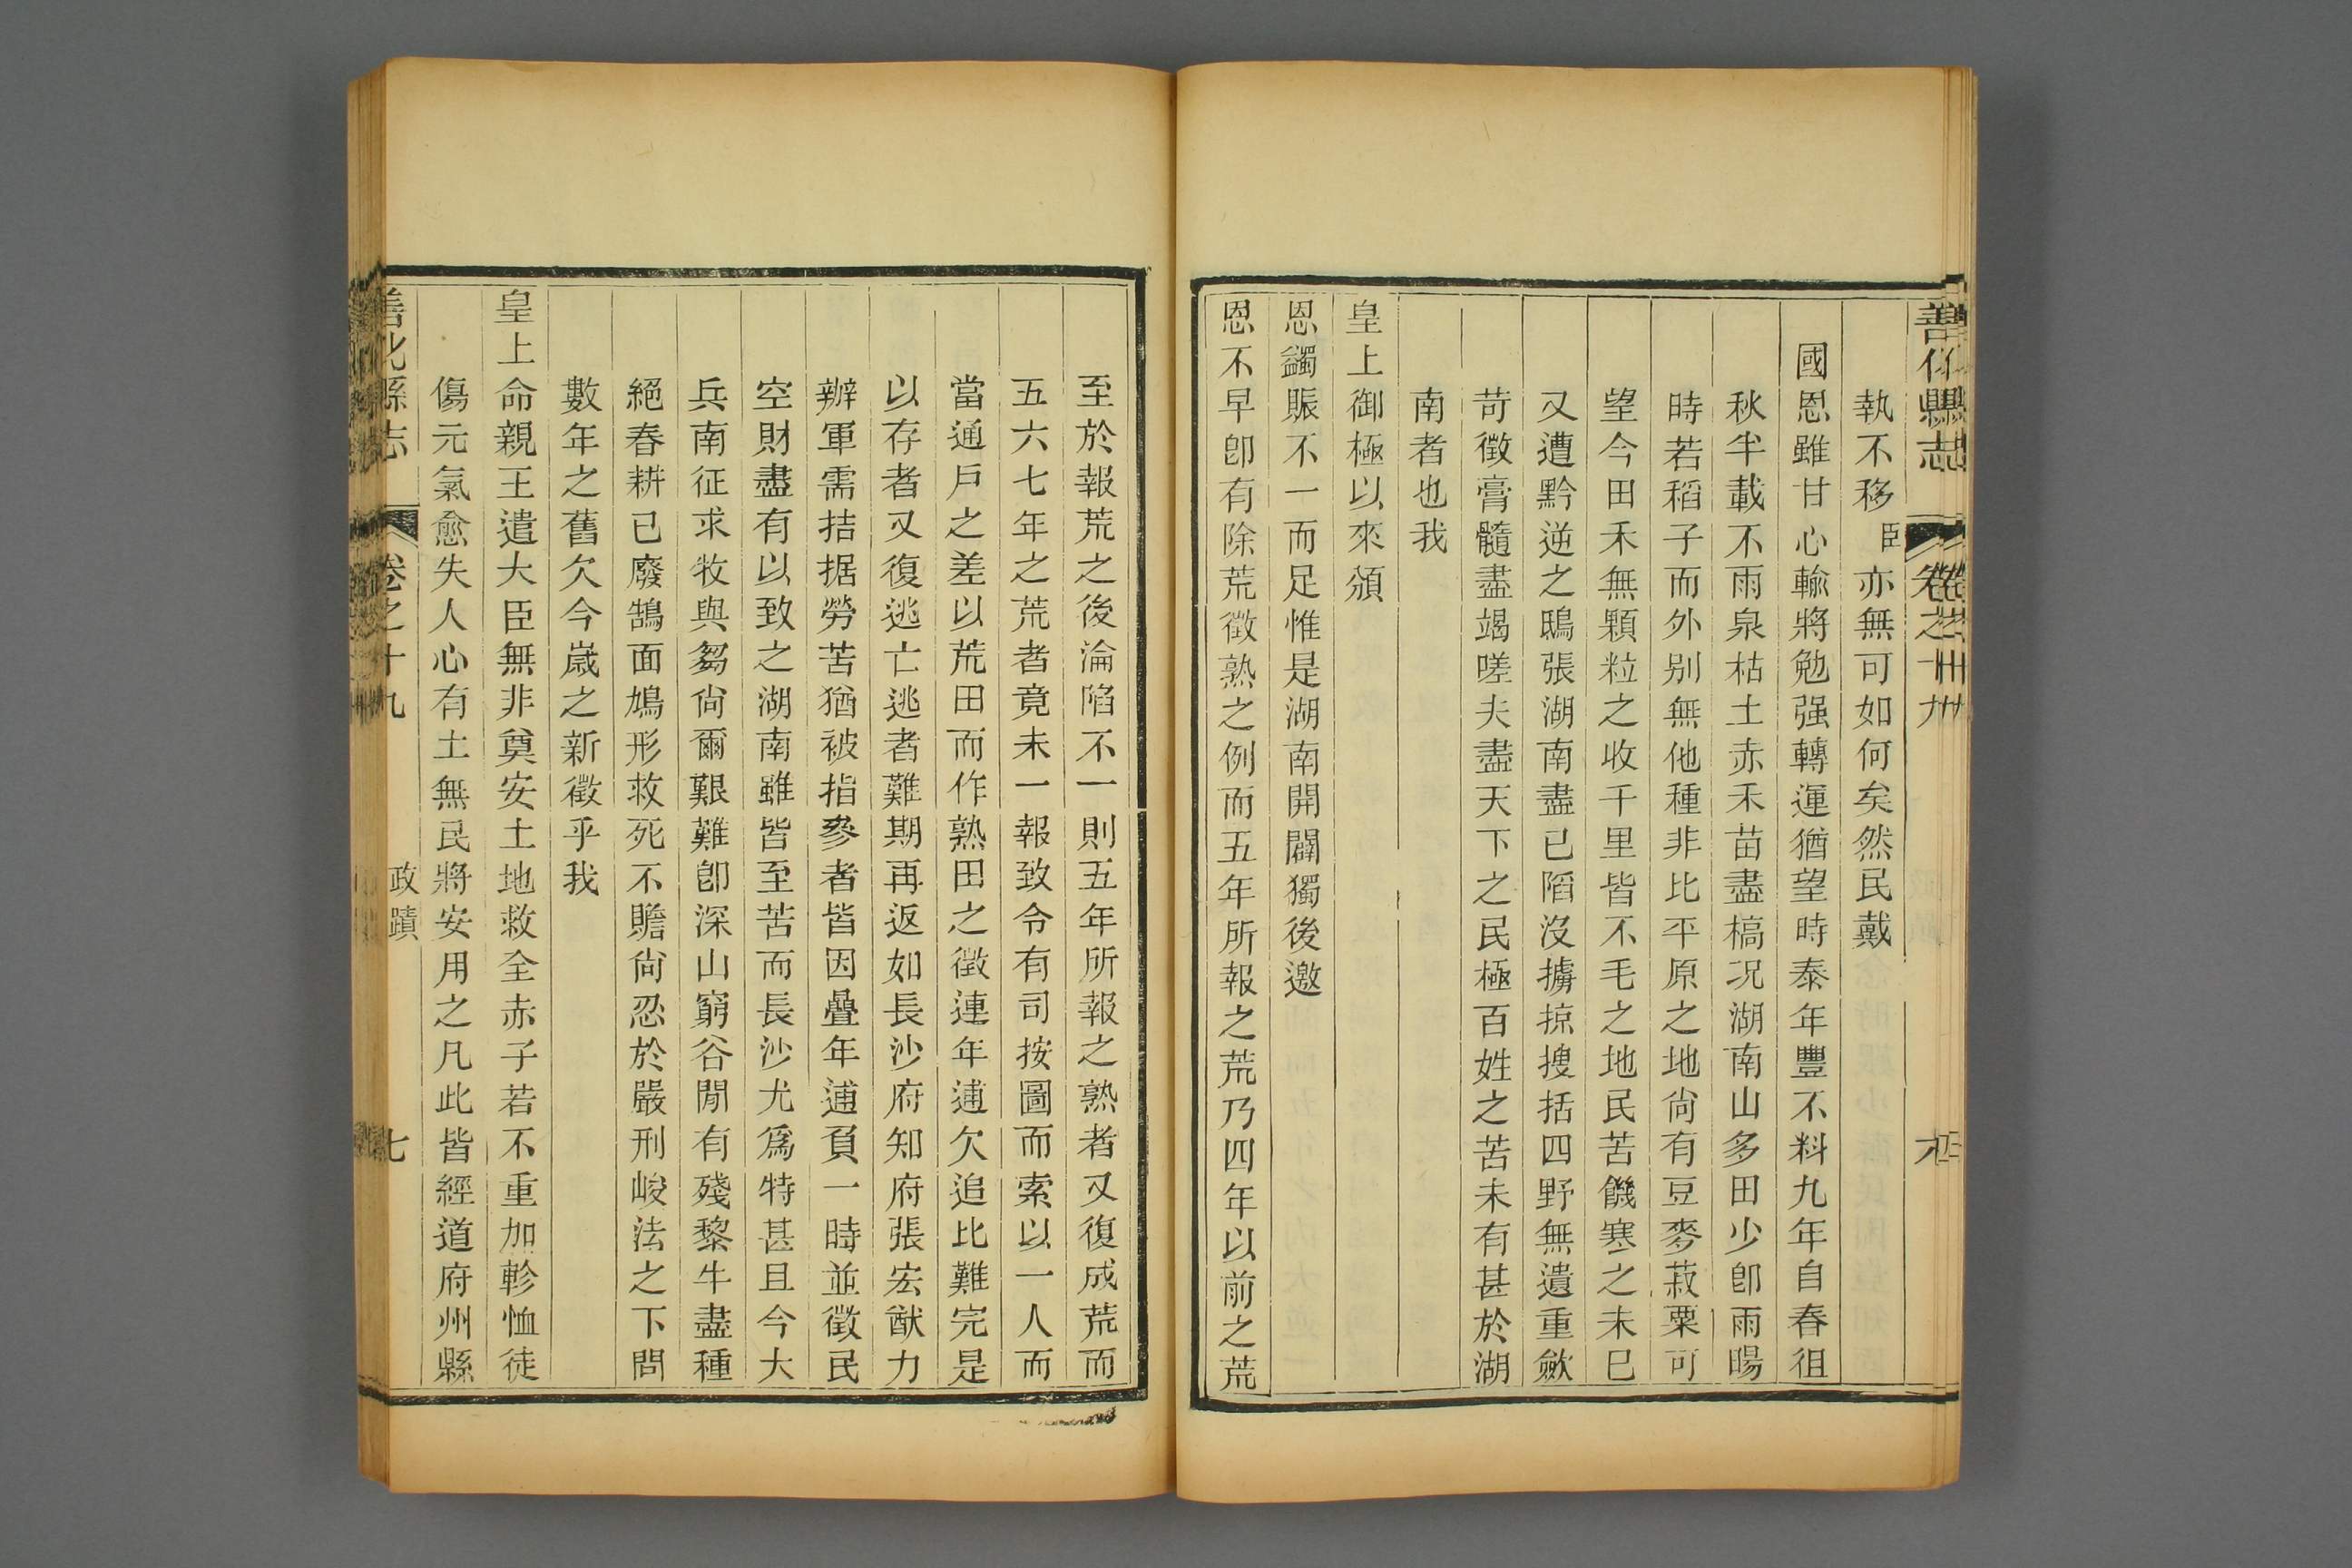 善化縣志
卷之十九
執不移臣亦無可如何矣然民戴
國恩雖甘心輸將勉强轉運猶望時泰年豐不料九年自春徂
秋半載不雨泉枯土赤禾苗盡槁况湖南山多田少卽雨暘
時若稻子而外别無他種非比平原之地尙有豆麥菽粟可
望今田禾無顆粒之收千里皆不毛之地民苦饑寒之未已
又遭黔逆之鴟張湖南盡已陷沒擄掠搜括四野無遺重斂
苛徵膏髓盡竭嗟夫盡天下之民極百姓之苦未有甚於湖
南者也我
皇上御極以來頒
恩蠲賑不一而足惟是湖南開闢獨後邀
恩不早卽有除荒徵熟之例而五年所報之荒乃四年以前之荒
至於報荒之後淪陷不一則五年所報之熟者又復成荒而
五六七年之荒者竟未一報致令有司按圖而索以一人而
當通戶之差以荒田而作熟田之徵連年逋欠追比難完是
以存者又復逃亡逃者難期再返如長沙府知府張宏猷力
辦軍需拮据勞苦猶被指參者皆因疊年逋負一時並徵民
空財盡有以致之湖南雖皆至苦而長沙尤爲特甚且今大
兵南征求牧與芻尙爾艱難卽深山窮谷閒有殘黎牛盡種
絕春耕已廢鵠面鳩形救死不贍尙忍於嚴刑峻法之下問
數年之舊欠今歲之新徵乎我
皇上命親王遣大臣無非奠安土地救全赤子若不重加軫恤徒
傷元氣愈失人心有土無民將安用之凡此皆經道府州縣
善化縣志
卷之十九
政蹟
七